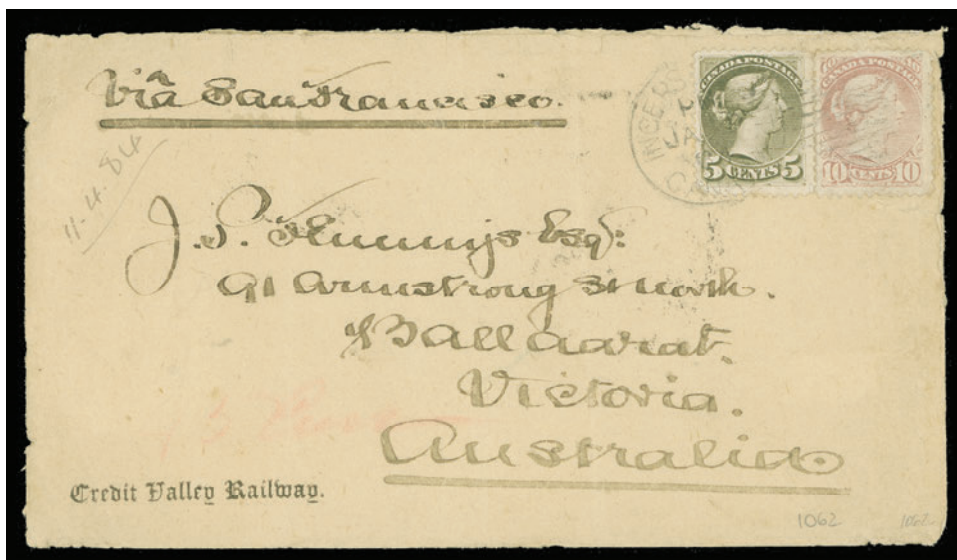 Via San Francisco.
11.4.84
CANADA POSTAGE
5 CENTS 5
CANADA POSTAGE
10 CENTS 10
INGERS
JA
CAN
J. S. Flemmings Esq:
91 Armstrong St North.
Ballaarat.
Victoria.
Australia
Credit Valley Railway.
1062
1062